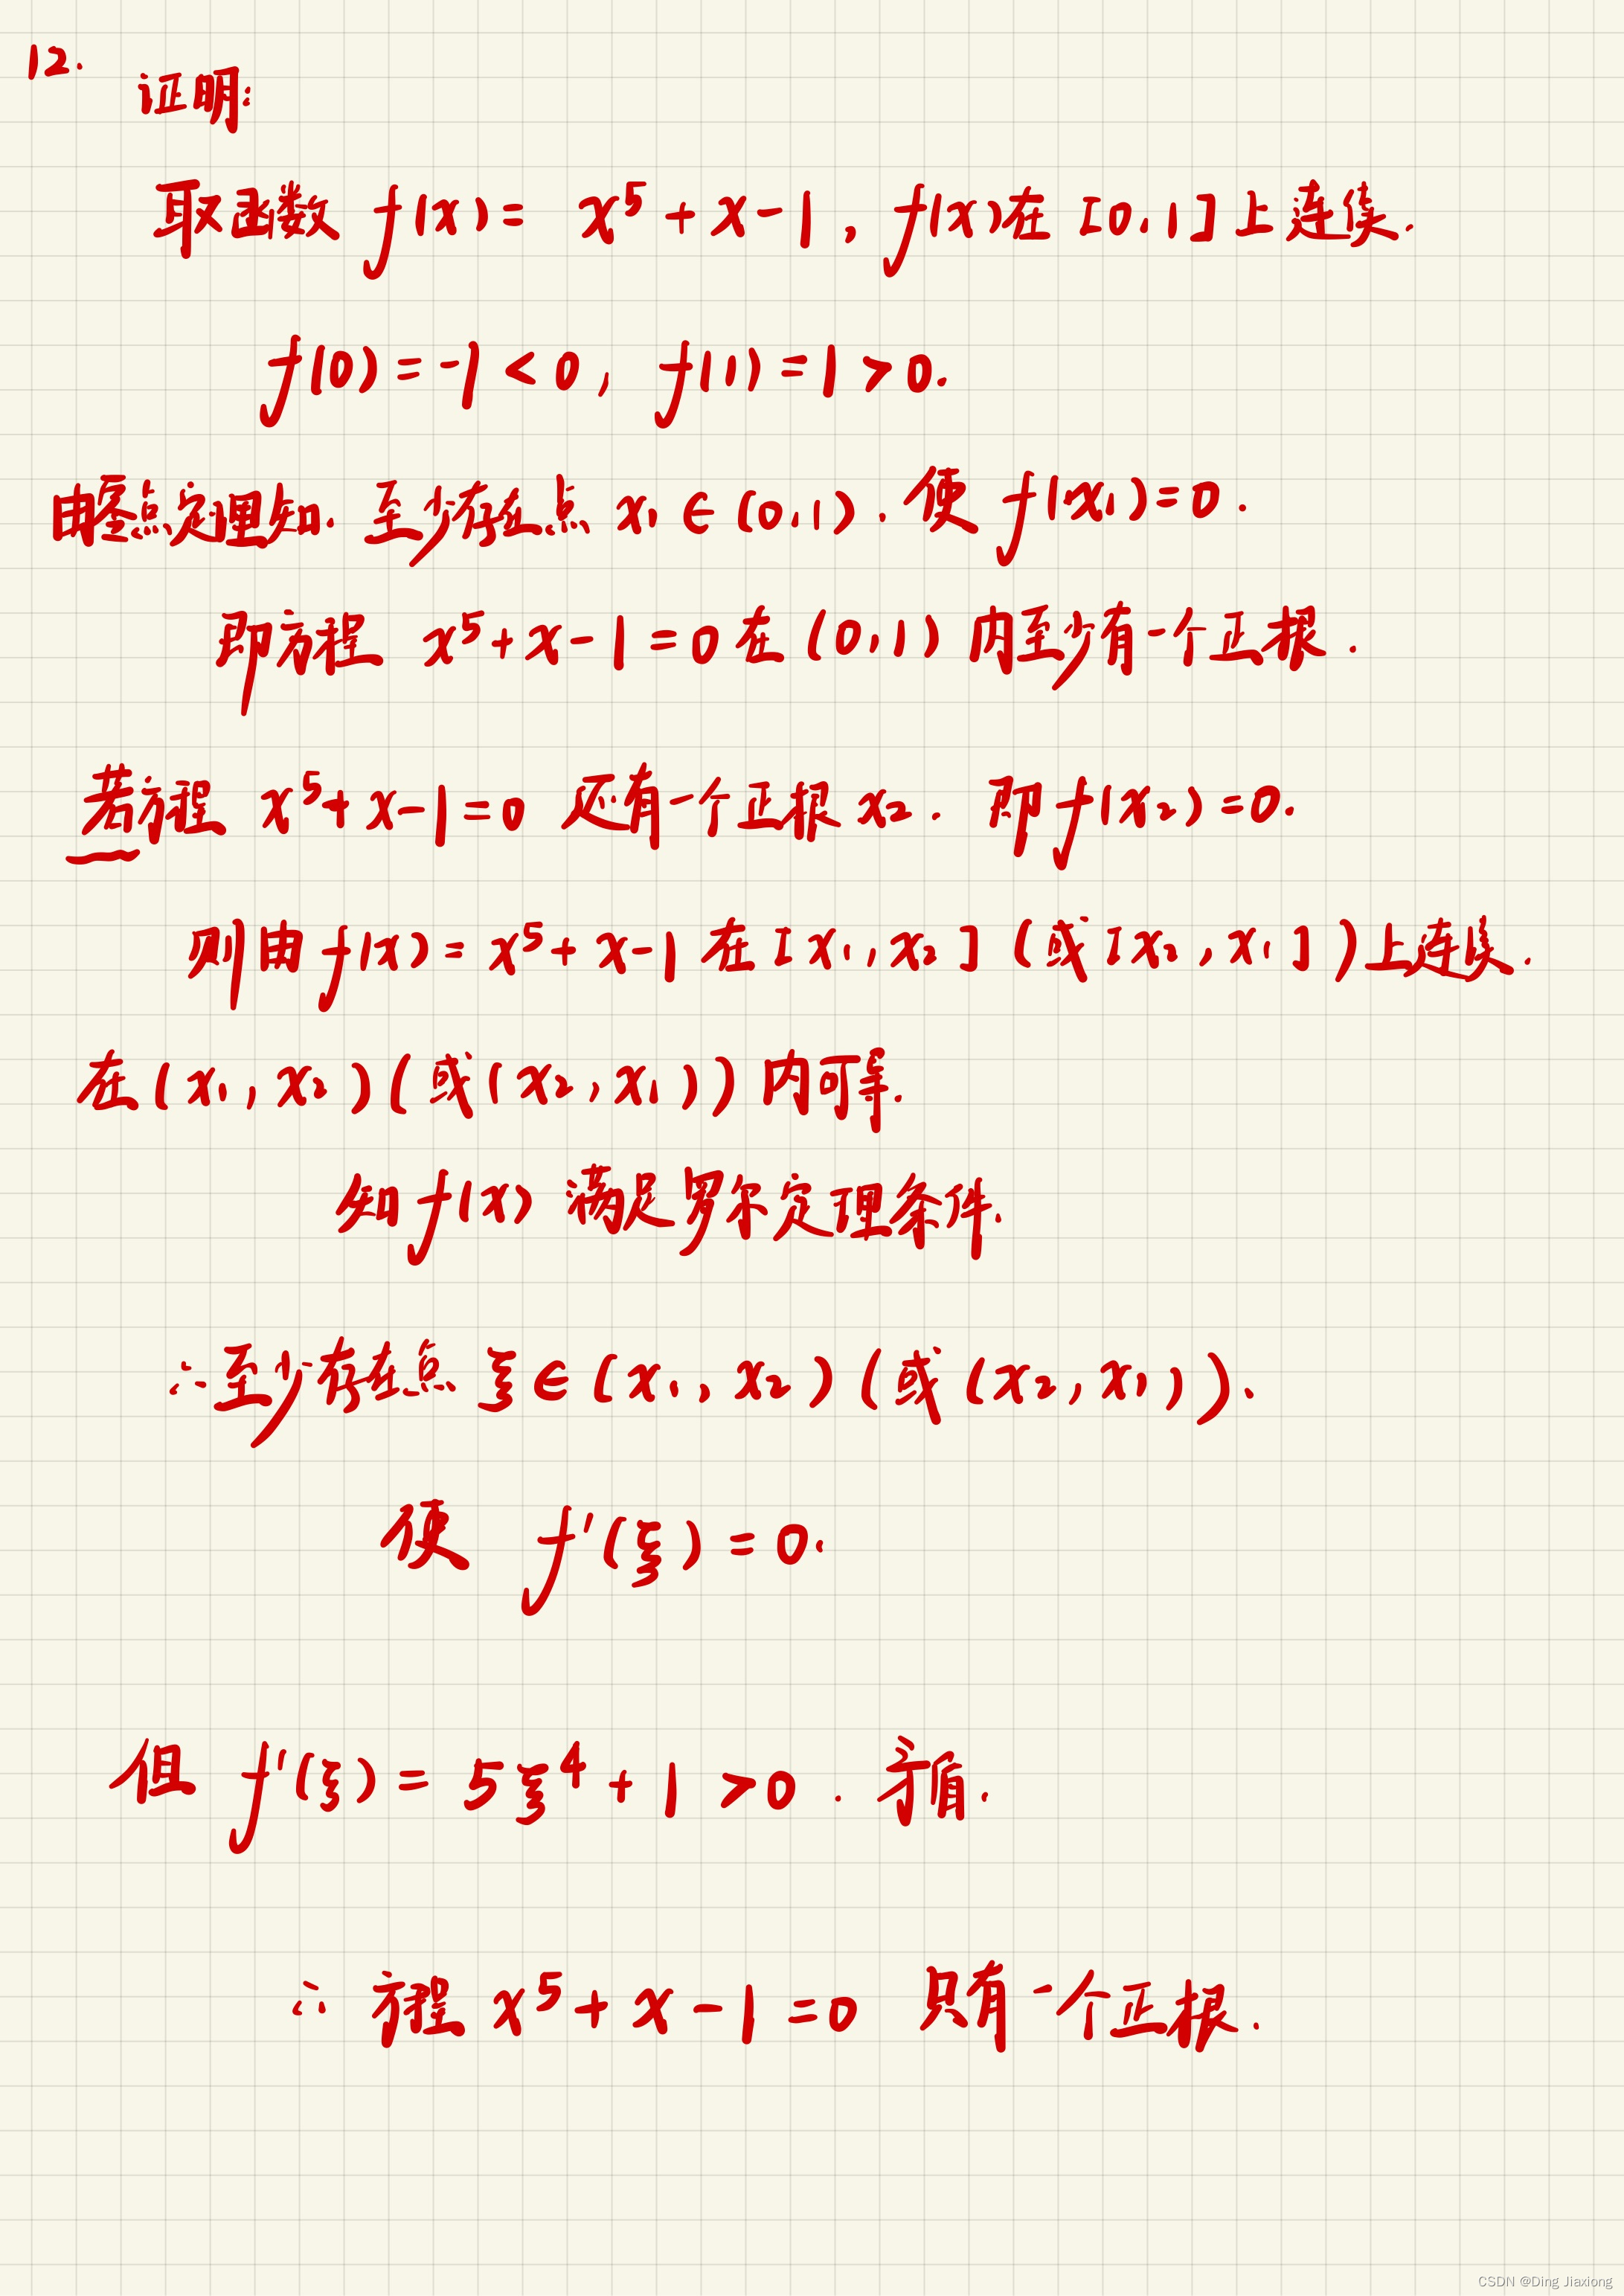 12.
证明:
取函数 f(x) = x⁵ + x - 1, f(x)在 [0,1] 上连续.
f(0) = -1 < 0, f(1) = 1 > 0.
由零点定理知. 至少存在点 x₁ ∈ (0,1). 使 f(x₁) = 0.
即方程 x⁵ + x - 1 = 0 在 (0,1) 内至少有一个正根.
若方程 x⁵ + x - 1 = 0 还有一个正根 x₂. 即 f(x₂) = 0.
则由 f(x) = x⁵ + x - 1 在 [x₁, x₂] (或 [x₂, x₁]) 上连续.
在 (x₁, x₂) (或 (x₂, x₁)) 内可导.
知 f(x) 满足罗尔定理条件.
∴ 至少存在点 ξ ∈ (x₁, x₂) (或 (x₂, x₁)).
使 f'(ξ) = 0.
但 f'(ξ) = 5ξ⁴ + 1 > 0. 矛盾.
∴ 方程 x⁵ + x - 1 = 0 只有一个正根.
CSDN @Ding Jiaxiong